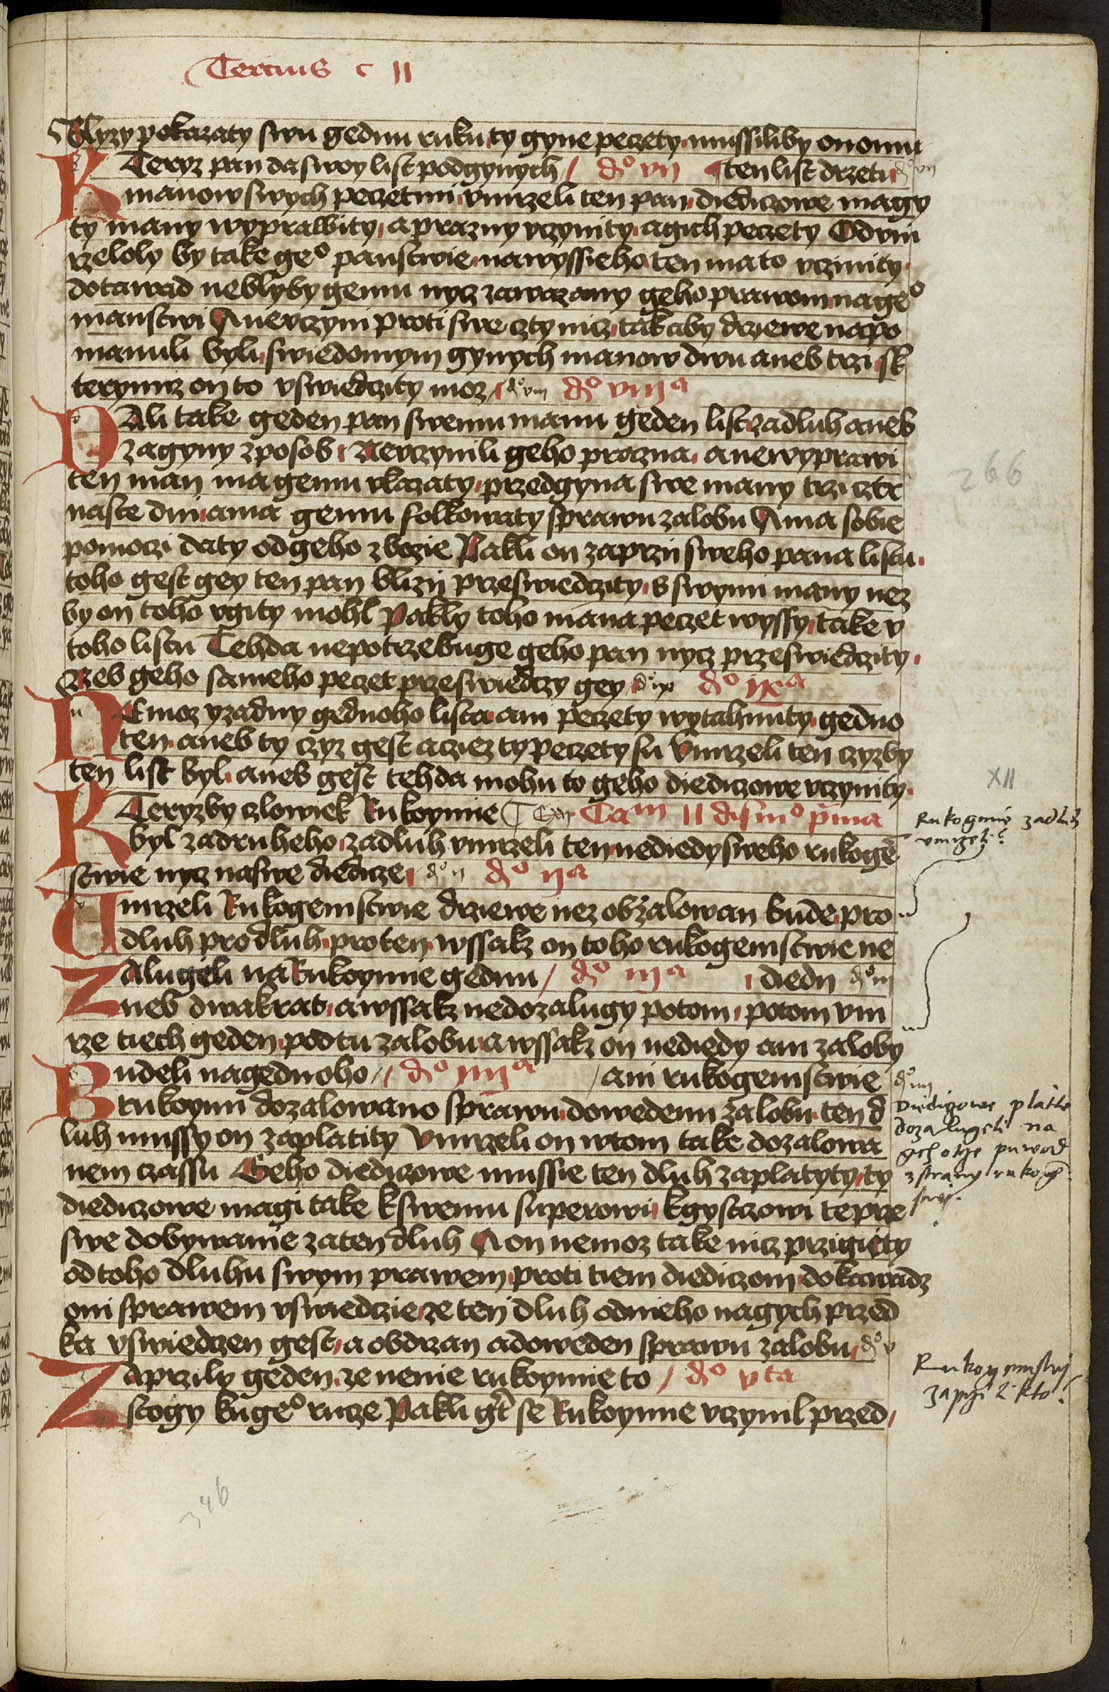 Tercius c II
Blyzy pokazaty swu gednu ruku ty gyne peczety mussiliby onomu
Kteryz pan da swoy list podgynych / dº vii ten list drzetu
manow swych peczetmi vmrzeli ten pan diediczowe magy
ty many wyprawity a prazny vczynity a gich peczety Odmi
rzeloly by take geº panstwie na wyssieho ten ma to vczinity
dotawad neblyby gemu nycz zawazany geho prawom na geº
manstwi A nevczym proti swe czty nicz tak aby drziewe napo
manuli byli swiedomym gynych manow dwu aneb trzi sk
terymiz on to vswiedczity moz dº viii dº viiiª
Dali take geden pan swemu manu geden list za dluh aneb
za gyny zposob Nevczynili geho prozna a newyprawi
ten man ma gemu vkazaty przed gyna swe many trzi cztr
naste dni a ma gemu folkowaty sprawu zalobu A ma sobie
pomoczi daty od geho zbozie Pakli on zaprzii sweho pana listu
toho gest gey ten pan blizii przeswiedczity s swymi many nez
by on toho vgity mohl Pakly toho mana peczet wyssy take v
toho listu Tehda nepotrzebuge geho pan nycz przeswiedczity
Neb geho sameho peczet przeswiedczy gey dº ix dº ixª
Nemoz yzadny gednoho lista ani peczety wytahnuty gedno
ten aneb ty czyz gest a cziez ty peczety su Vmrzeli ten czyzby
ten list byl aneb gest tehda mohu to geho diediczowe vczynity
Kteryzby czlowiek Rukoymie Cam II dis iiiº pma
byl za druheho za dluh vmrzeli ten nediedy sweho rukogē
stwie nycz na swe diedicze dº ii dº iiª
Umrzeli Rukogemstwie drziewe nez obzalowan bude pro
dluh pro dluh pro ten wssakz on toho rukogemstwie ne
Zalugeli na Rukoymie gednu / dº iiiª diedii dº iii
aneb dwakrat a wssakz nedozalugy potom potom vm
rze tiech geden pod tu zalobu a wssakz on nediedy ani zaloby
Budeli na gednoho / dº iiiiª / ani rukogemstwie dº iiii
rukoymi dozalowano sprawu dowedenu zalobu ten d
luh mussy on zaplatity Vmrzeli on w tom take dozalowa
nem czassu Geho diediczowe mussie ten dluh zaplatyty ty
diediczowe magi take k swemu superowi k gysczowi te prze
swe dobywanie za ten dluh A on nemoz take nicz przigiety
od toho dluhu swym prawem proti tiem diediczom dokawadz
oni sprawem vswiedczie ze ten dluh od nieho na gych przed
ka vswiedczen gest a obdrzan a doweden sprawu zalobu dº v
Zaprzily geden ze nenie rukoymie to / dº vta
stogy k geº rucze Pakli gt se Rukoymie vczynil przed
266
XII
Rukogmie za dluh
vmrzeli
Diediczowe platie
dozalugeli na
Rukogemstwij
zaprzi li kto
346